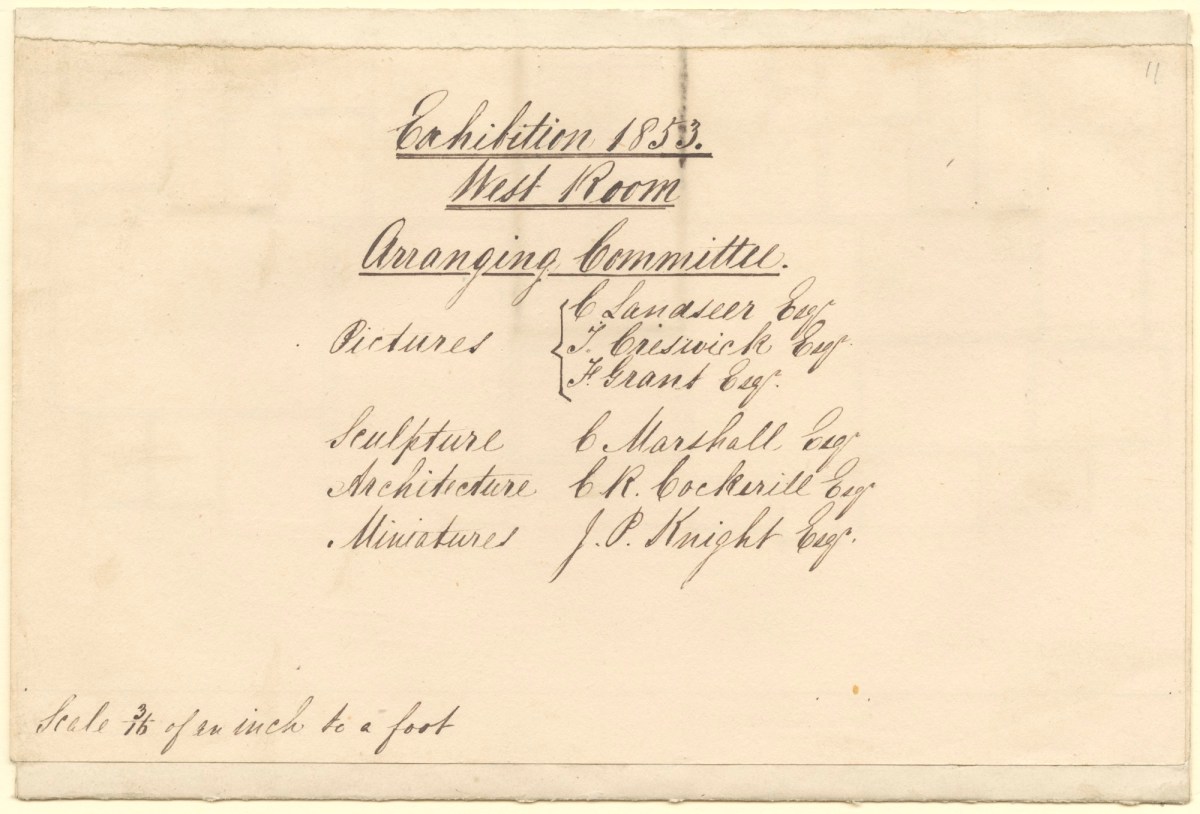 11
Exhibition 1853.
West Room
Arranging Committee.
Pictures { C Landseer Esqr
T. Creswick Esqr.
F. Grant Esqr.
Sculpture C Marshall Esqr
Architecture C R. Cockerill Esqr
Miniatures J. P. Knight Esqr.
Scale 3/16 of an inch to a foot